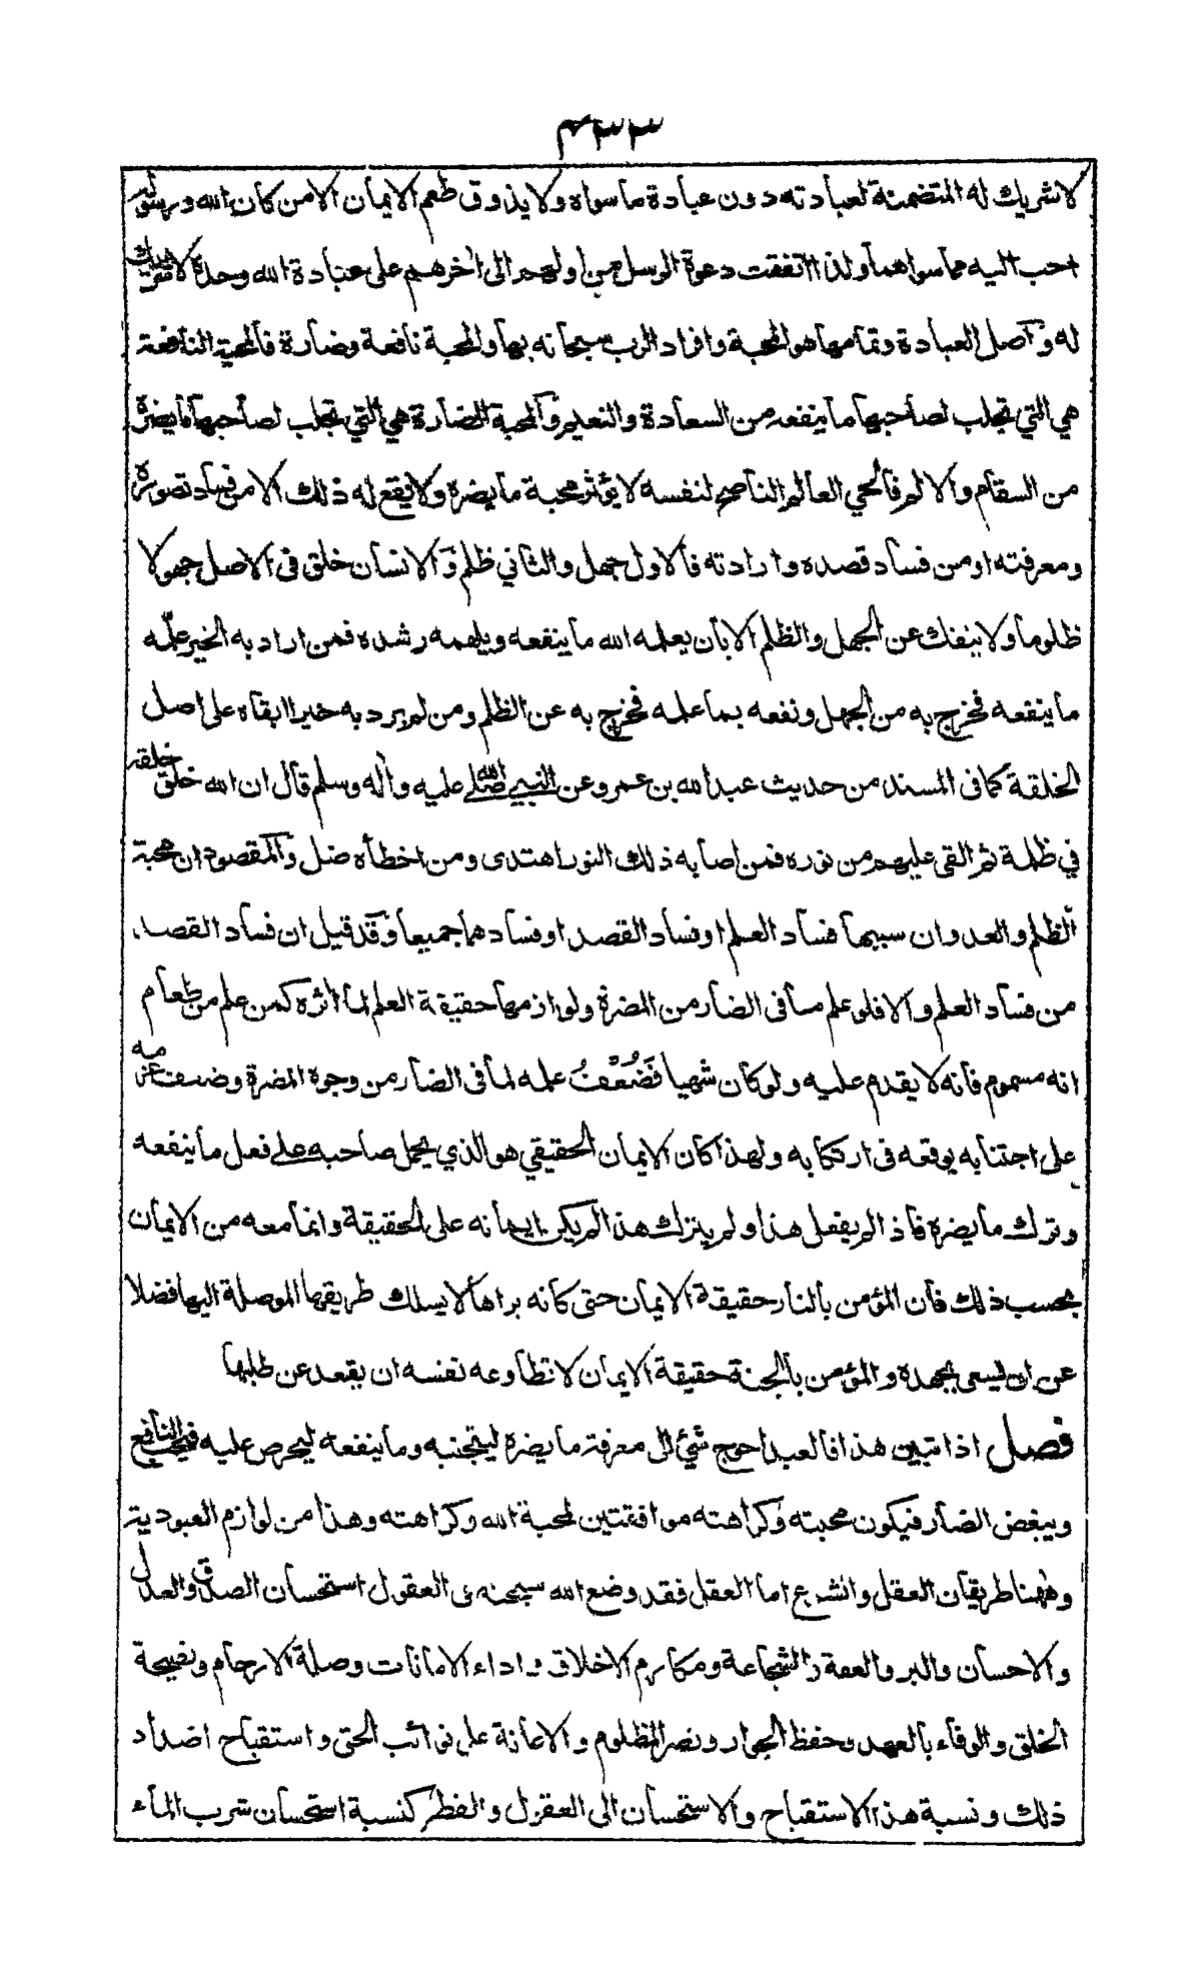 ٤٣٣
لا شريك له المتضمنة لعبادته دون عبادة ما سواه ولا يذوق طعم الايمان الا من كان الله ورسوله
احب اليه مما سواهما ولذا اتفقت دعوة الرسل من اولهم الى اخرهم على عبادة الله وحده لا شريك
له واصل العبادة وتمامها هو المحبة وافراد الرب سبحانه بها والمحبة نافعة وضارة فالمحبة النافعة
هي التي تجلب لصاحبها ما ينفعه من السعادة والنعيم والمحبة الضارة هي التي تجلب لصاحبها ما يضره
من السقام والالم فالحي العالم الناصح لنفسه لا يؤثر محبة ما يضره ولا يقع له ذلك الا من فساد تصوره
ومعرفته او من فساد قصده وارادته فالاول جهل والثاني ظلم والانسان خلق في الاصل جهولا
ظلوما ولا ينفك عن الجهل والظلم الا بان يعلمه الله ما ينفعه ويلهمه رشده فمن اراد به الخير علّمه
ما ينفعه فخرج به من الجهل ونفعه بما علمه فخرج به عن الظلم ومن لم يرد به خيرا ابقاه على اصل
الخلقة كما في المسند من حديث عبدالله بن عمرو عن النبي صلى الله عليه وأله وسلم قال ان الله خلق خلقه
في ظلمة ثم القى عليهم من نوره فمن اصابه ذلك النور اهتدى ومن اخطأه ضل والمقصود ان محبة
الظلم والعدوان سببها فساد العلم او فساد القصد او فسادهما جميعا وقد قيل ان فساد القصد
من فساد العلم والا فلو علم ما في الضار من المضرة ولوازمها حقيقة العلم لما اثره كمن علم من طعام
انه مسموم فانه لا يقدم عليه ولو كان شهيا فَضُعْفُ علمه لما في الضار من وجوه المضرة وضعف عزمه
على اجتنابه يوقعه في ارتكابه ولهذا كان الايمان الحقيقي هو الذي يحمل صاحبه على فعل ما ينفعه
وترك ما يضره فاذا لم يفعل هذا ولم يترك هذا لم يكن ايمانه على الحقيقة وانما معه من الايمان
بحسب ذلك فان المؤمن بالنار حقيقة الايمان حتى كانه يراها لا يسلك طريقها الموصلة اليها فضلا
عن ان يسعى بجهده والمؤمن بالجنة حقيقة الايمان لا تطاوعه نفسه ان يقعد عن طلبها
فصل اذا تبين هذا فالعبد احوج شئ الى معرفة ما يضره ليتجنبه وما ينفعه ليحرص عليه فيحب النافع
ويبغض الضار فيكون محبته وكراهته موافقتين لمحبة الله وكراهته وهذا من لوازم العبودية
وههنا طريقان العقل والشرع اما العقل فقد وضع الله سبحنه في العقول استحسان الصدق والعدل
والاحسان والبر والعفة والشجاعة ومكارم الاخلاق واداء الامانات وصلة الارحام ونصيحة
الخلق والوفاء بالعهد وحفظ الجوار ونصر المظلوم والاعانة على نوائب الحق واستقباح اضداد
ذلك ونسبة هذا الاستقباح والاستحسان الى العقول والفطر كنسبة استحسان شرب الماء